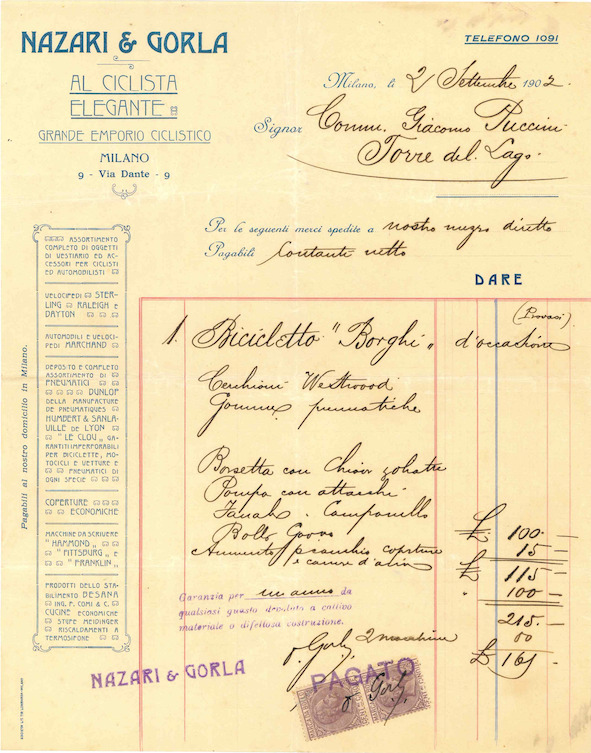 NAZARI & GORLA
AL CICLISTA
ELEGANTE
GRANDE EMPORIO CICLISTICO
MILANO
9 - Via Dante - 9
TELEFONO 1091
Milano, li 2 Settembre 1902
Signor Comm. Giacomo Puccini
Torre del Lago.
Per le seguenti merci spedite a nostro mezzo diretto
Pagabili Contante netto
DARE
ASSORTIMENTO
COMPLETO DI OGGETTI
DI VESTIARIO ED AC-
CESSORI PER CICLISTI
ED AUTOMOBILISTI
VELOCIPEDI STER-
LING RALEIGH E
DAYTON
AUTOMOBILI E VELOCI-
PEDI MARCHAND
DEPOSITO E COMPLETO
ASSORTIMENTO DI
PNEUMATICI
DUNLOP
DELLA MANUFACTURE
DE PNEUMATIQUES
HUMBERT & SANLA-
VILLE DE LYON
"LE CLOU" GA-
RANTITI IMPERFORABILI
PER BICICLETTE, MO-
TOCICLI E VETTURE E
PNEUMATICI DI
OGNI SPECIE
COPERTURE
ECONOMICHE
MACCHINE DA SCRIVERE
"HAMMOND"
"PITTSBURG" E
"FRANKLIN"
PRODOTTI DELLO STA-
BILIMENTO DESANA
ING. P. COMI & C.
CUCINE ECONOMICHE
STUFE MEIDINGER
RISCALDAMENTI A
TERMOSIFONE
Pagabili al nostro domicilio in Milano.
1. Bicicletto "Borghi" d'occasione
Cerchioni Westwood
Gomme pneumatiche
Borsetta con
Pompa con attacchi
Fanale Campanello
Bollo £ 100.—
Aumento p cambio coperture 15 —
e camere d'aria £ 115 —
" 100 —
215.—
£ 165 —
Garanzia per un anno da
qualsiasi guasto dovuto a cattivo
materiale o difettosa costruzione.
2 macchine
Gorla
NAZARI & GORLA
PAGATO
Gorla